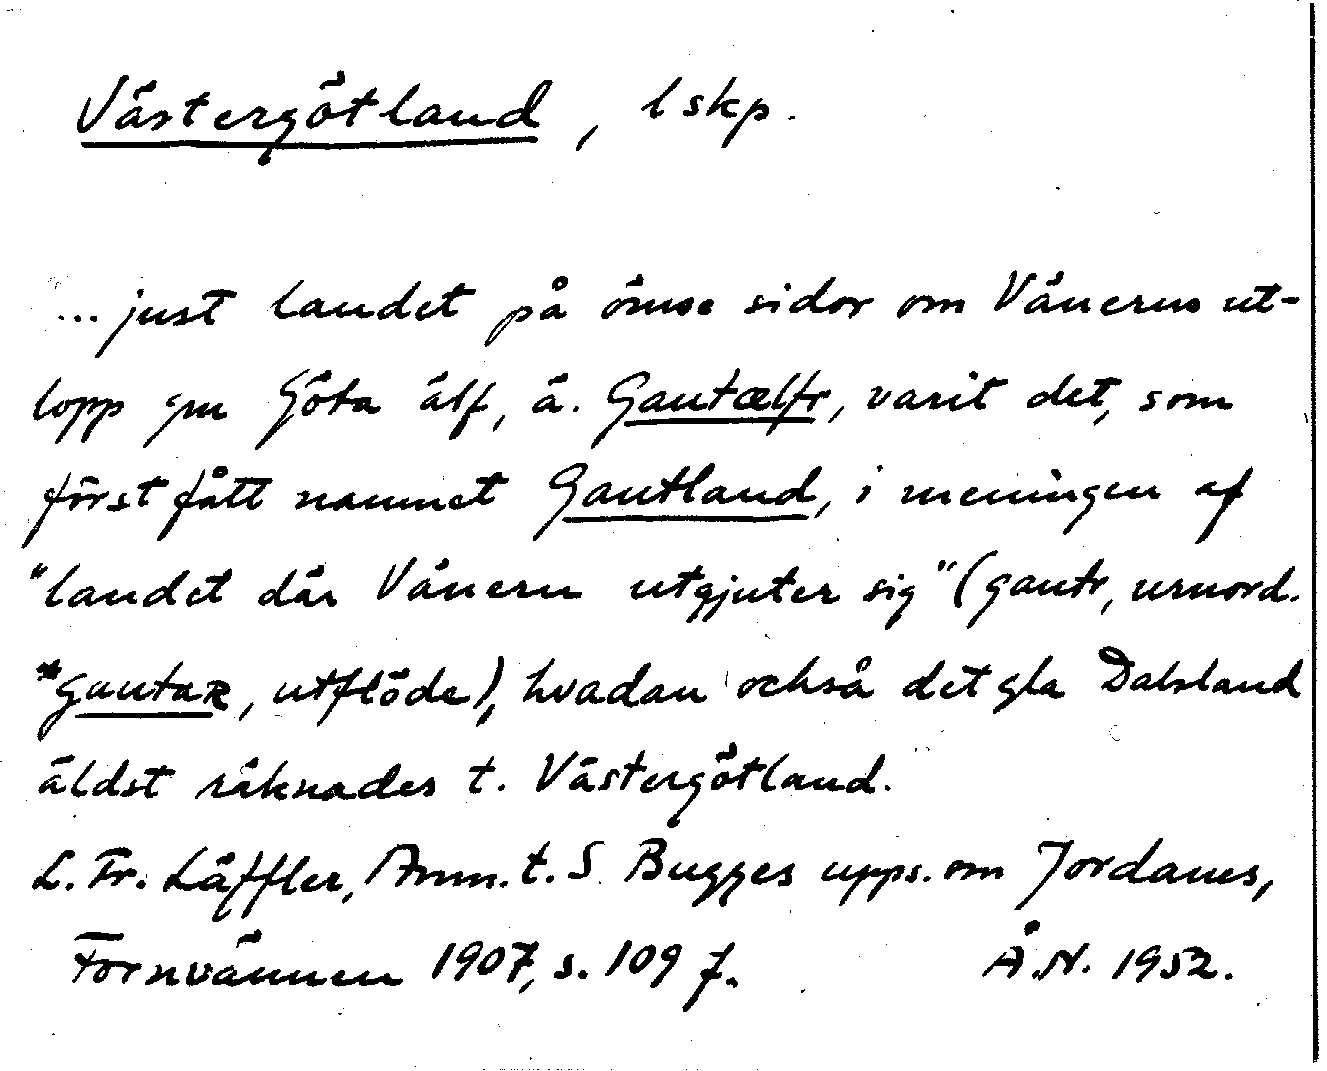 Västergötland, lskp.
... just landet på ömse sidor om Vänerns ut-
lopp gm Göta älf, ä. Gautælfr, varit det, som
först fått namnet Gautland, i meningen af
"landet där Vänern utgjuter sig" (gautr, urnord.
*gautaR, utflöde), hvadan också det gla Dalsland
äldst räknades t. Västergötland.
L. Fr. Läffler, Anm. t. S. Bugges upps. om Jordanes,
Fornvännen 1907, s. 109 f. Å.N. 1952.